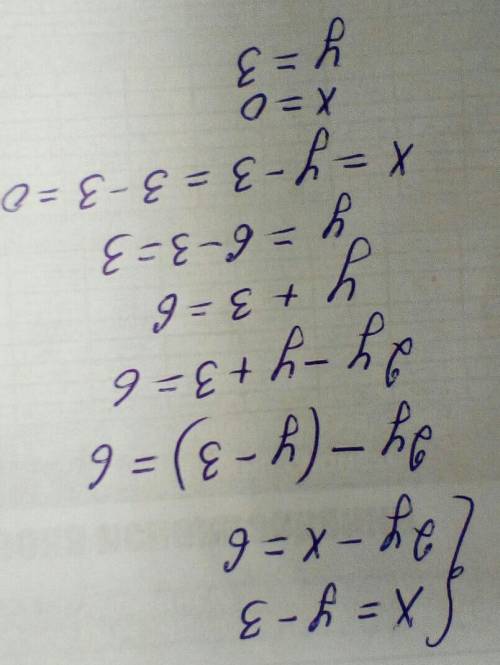 x = y - 3
2y - x = 6
2y - (y - 3) = 6
2y - y + 3 = 6
y + 3 = 6
y = 6 - 3 = 3
x = y - 3 = 3 - 3 = 0
x = 0
y = 3